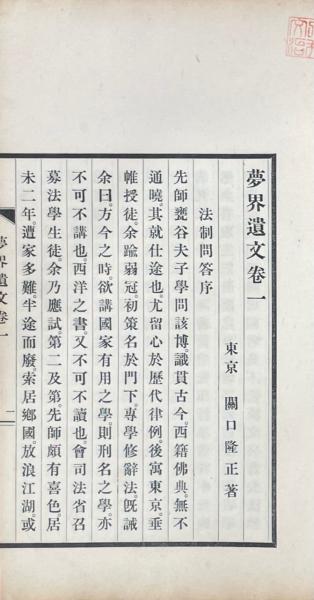 夢界遺文卷一
東京 關口隆正著
法制問答序
先師甕谷夫子學問該博。識貫古今。西籍佛典。無不
通曉。其就仕途也。尤留心於歷代律例。後寓東京。垂
帷授徒。余踰弱冠。初策名於門下。專學修辭法。旣誡
余曰。方今之時。欲講國家有用之學。則刑名之學。亦
不可不講也。西洋之書。又不可不讀也。會司法省召
募法學生徒。余乃應試。第二及第。先師頗有喜色。居
未二年。遭家多難。半途而廢。索居鄉國。放浪江湖。或
夢界遺文卷一